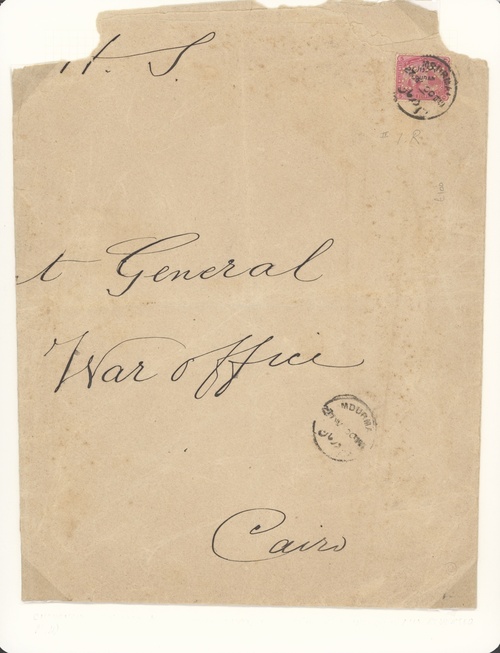 H. S.
t General
War office
Cairo